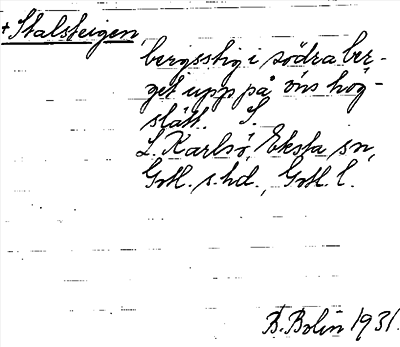 + Stalsteigen,
bergsstig i södra ber-
get upp på öns hög-
slätt. S.
L. Karlsö, Eksta sn,
Gotl. s. hd., Gotl. l.
B. Bolin 1931.